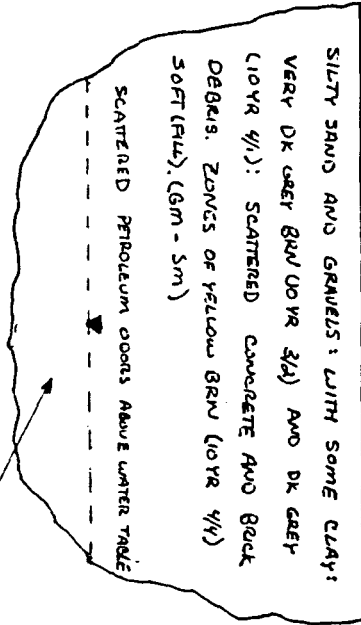 SILTY SAND AND GRAVELS: WITH SOME CLAY:
VERY DK GREY BRN (10 YR 3/2) AND DK GREY
(10YR 4/1): SCATTERED CONCRETE AND BRICK
DEBRIS. ZONES OF YELLOW BRN (10YR 4/4)
SOFT (FILL). (GM - SM)
SCATTERED PETROLEUM ODORS ABOVE WATER TABLE